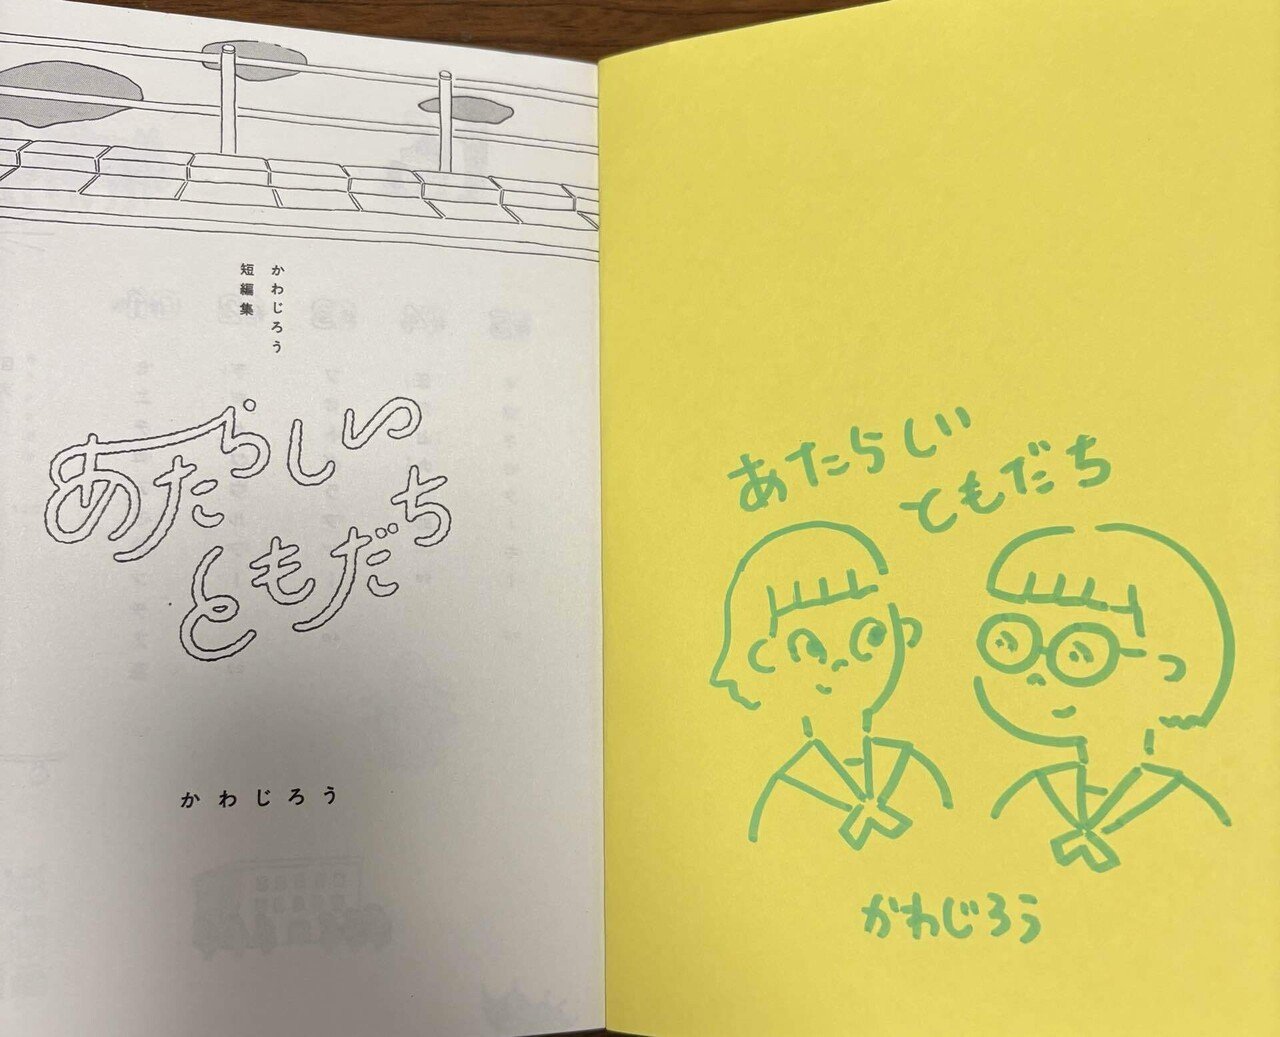 かわじろう
短編集
あたらしい
ともだち
かわじろう
あたらしい
ともだち
かわじろう